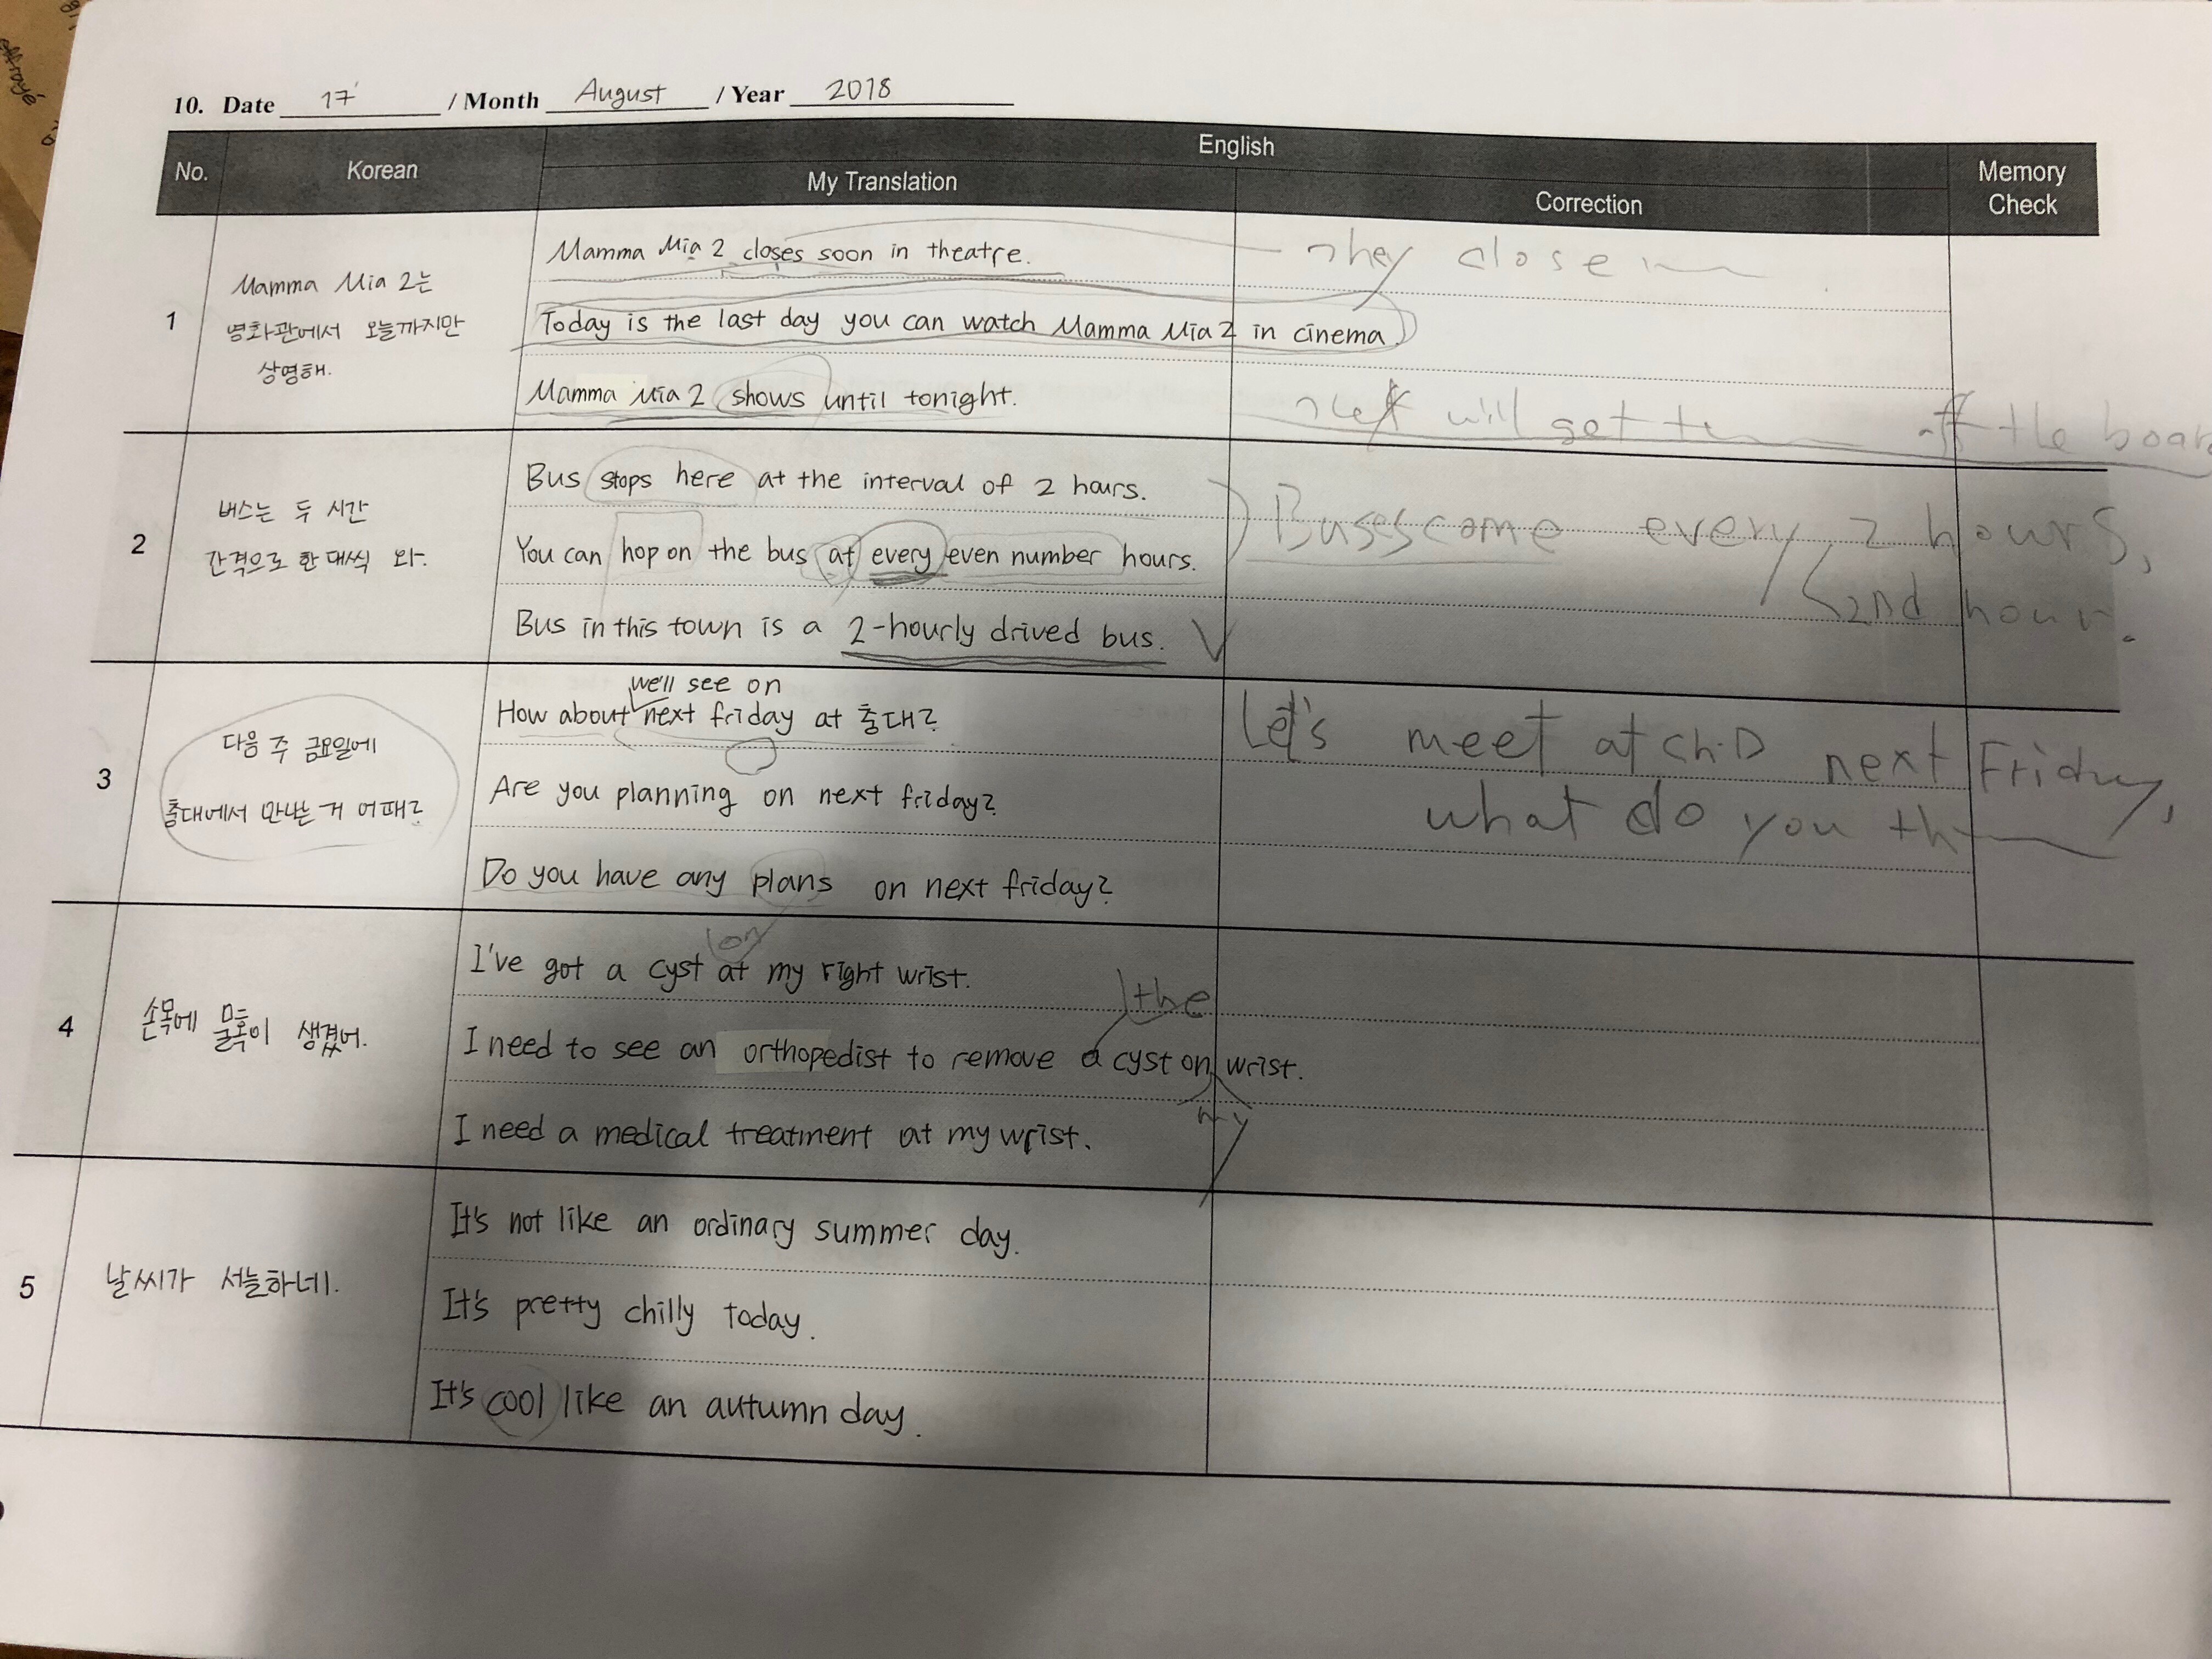 10. Date 17 / Month August / Year 2018
No. Korean English Memory Check
My Translation Correction
1
Mamma Mia 2는
영화관에서 오늘까지만
상영해.
Mamma Mia 2 closes soon in theatre.
They close
Today is the last day you can watch Mamma Mia 2 in cinema.
Mamma Mia 2 shows until tonight.
will get off the board
2
버스는 두 시간
간격으로 한 대씩 와.
Bus stops here at the interval of 2 hours.
You can hop on the bus at every even number hours.
Bus in this town is a 2-hourly drived bus.
Buses come every 2 hours,
2nd hour.
3
다음 주 금요일에
충대에서 만나는 거 어때?
we'll see on
How about next friday at 충대?
Are you planning on next friday?
Do you have any plans on next friday?
Let's meet at Ch.D next Friday,
what do you th
4
손목에 물혹이 생겼어.
on
I've got a cyst at my right wrist.
the
I need to see an orthopedist to remove a cyst on wrist.
my
I need a medical treatment at my wrist.
5
날씨가 서늘하네.
It's not like an ordinary summer day.
It's pretty chilly today.
It's cool like an autumn day.